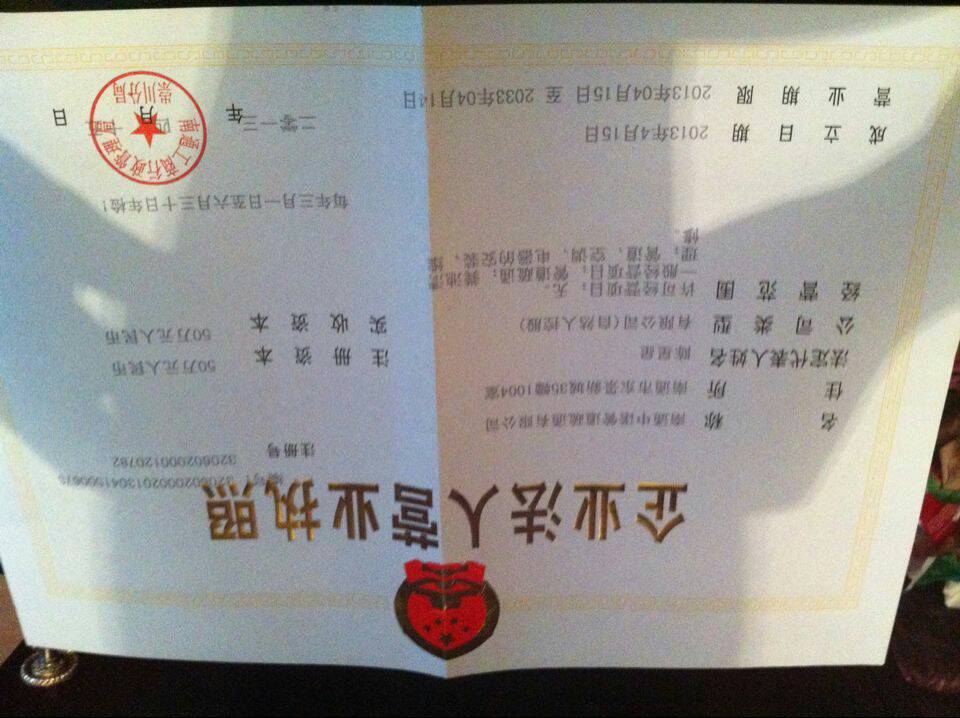 企业法人营业执照
编号 320602000201304150067S
注册号 320602000120782
名称 南通中诺管道疏通有限公司
住所 南通市东景新城35幢1004室
法定代表人姓名 陈星星
公司类型 有限公司(自然人控股)
经营范围 许可经营项目:无。
一般经营项目:管道疏通;粪池清
理;管道、空调、电器的安装、维
修。
注册资本 50万元人民币
实收资本 50万元人民币
成立日期 2013年4月15日
营业期限 2013年04月15日 至 2033年04月14日
每年三月一日至六月三十日年检!
南通工商行政管理局
崇川分局
二零一三年 四月 十五日